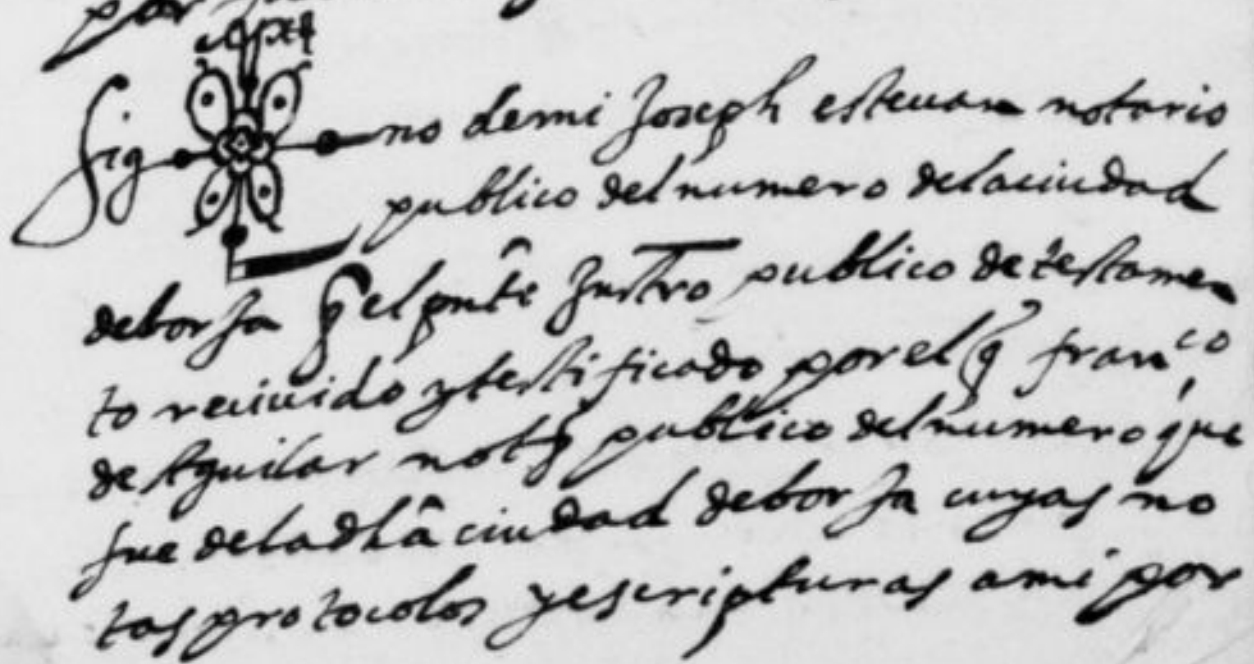 por
Sig no de mi Joseph esteuan notario
publico del numero de la ciudad
de borja q el pnte Instro publico de testamen
to reciuido y testificado por el q franco
de Aguilar notº publico del numero que
fue de la dha ciudad de borja cuyas no
tas protocolos y escripturas a mi por